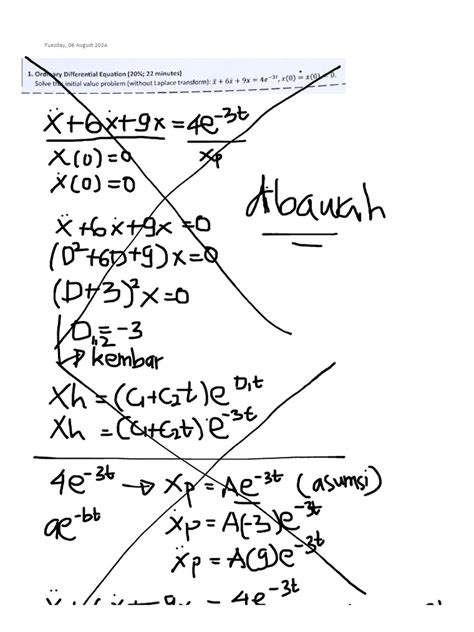 Tuesday, 06 August 2024
1. Ordinary Differential Equation (20%; 22 minutes)
Solve the initial value problem (without Laplace transform): ẍ + 6ẋ + 9x = 4e⁻³ᵗ, x(0) = ẋ(0) = 0.
ẍ+6ẋ+9x = 4e⁻³ᵗ
x(0)=0 xp
ẋ(0)=0
Abaikah
ẍ+6ẋ+9x=0
(D²+6D+9)x=0
(D+3)²x=0
D₁,₂=-3
→ kembar
Xh = (C₁+C₂t)e^D₁t
Xh = (C₁+C₂t)e⁻³ᵗ
4e⁻³ᵗ → Xp = Ae⁻³ᵗ (asumsi)
ae⁻ᵇᵗ ẋp = A(-3)e⁻³ᵗ
ẍp = A(9)e⁻³ᵗ